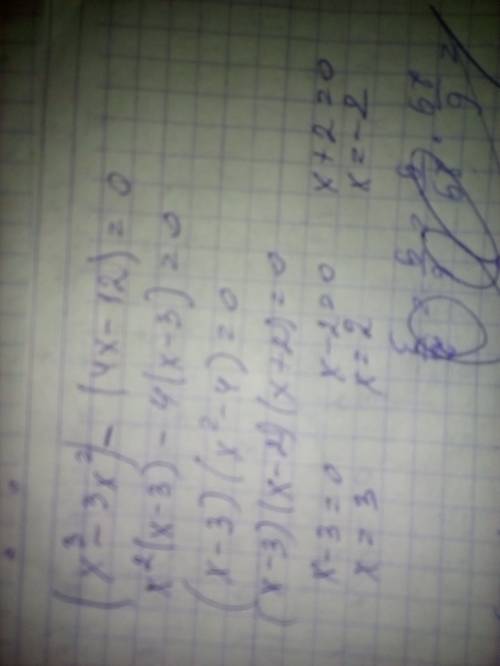 (x³ - 3x²) - (4x - 12) = 0
x²(x - 3) - 4(x - 3) = 0
(x - 3)(x² - 4) = 0
(x - 3)(x - 2)(x + 2) = 0
x - 3 = 0 x - 2 = 0 x + 2 = 0
x = 3 x = 2 x = -2